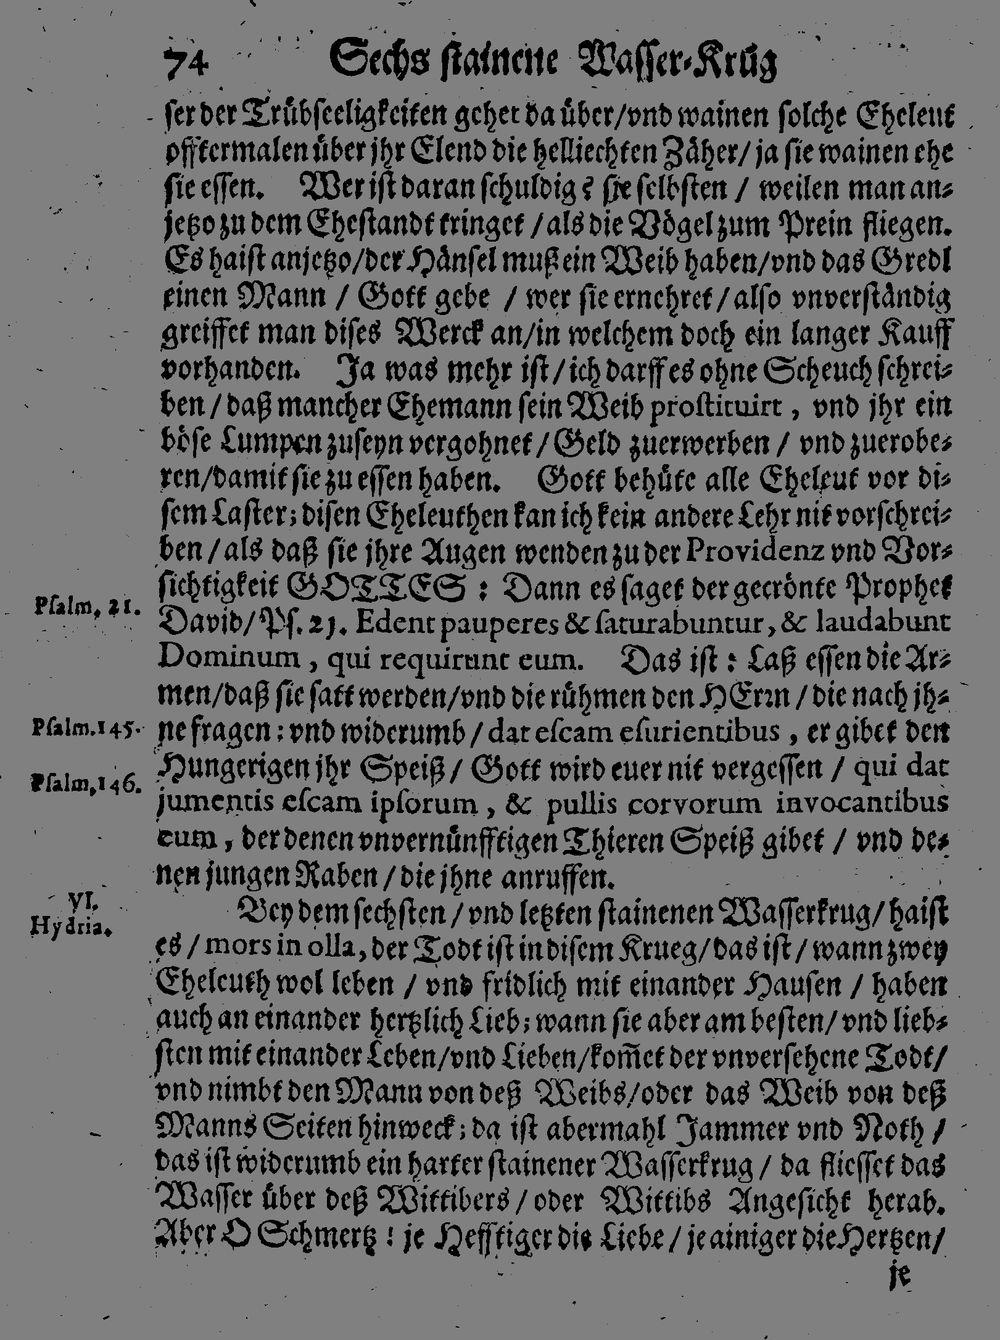 74 Sechs stainene Wasser-Krüg
ser der Trübseeligkeiten gehet da über/vnd wainen solche Eheleut
offtermalen über jhr Elend die helliechten Zäher/ ja sie wainen ehe
sie essen. Wer ist daran schuldig? sie selbsten / weilen man an-
jetzo zu dem Ehestandt tringet /als die Vögel zum Prein fliegen.
Es haist anjetzo/der Hänsel muß ein Weib haben/vnd das Gredl
einen Mann / Gott gebe / wer sie ernehret/also vnverständig
greiffet man dises Werck an/in welchem doch ein langer Kauff
vorhanden. Ja was mehr ist/ich darff es ohne Scheuch schrei-
ben/daß mancher Ehemann sein Weib prostituirt, vnd jhr ein
böse Lumpen zuseyn vergohnet/Geld zuerwerben / vnd zuerobe-
ren/damit sie zu essen haben. Gott behüte alle Eheleut vor di-
sem Laster; disen Eheleuthen kan ich kein andere Lehr nit vorschrei-
ben/als daß sie jhre Augen wenden zu der Providenz vnd Vor-
sichtigkeit GOTTES : Dann es saget der gecrönte Prophet
Psalm. 21.
David/Ps. 21. Edent pauperes & saturabuntur, & laudabunt
Dominum, qui requirunt eum. Das ist : Laß essen die Ar-
men/daß sie satt werden/vnd die rühmen den HErrn/die nach jh-
Psalm. 145.
ne fragen; vnd widerumb/dat escam esurientibus, er gibet den
Hungerigen jhr Speiß/ Gott wird euer nit vergessen / qui dat
Psalm. 146.
jumentis escam ipsorum, & pullis corvorum invocantibus
eum, der denen vnvernünfftigen Thieren Speiß gibet / vnd de-
nen jungen Raben/die jhne anruffen.
VI.
Hydria.
Bey dem sechsten/vnd letzten stainenen Wasserkrug/haist
es/mors in olla, der Todt ist in disem Krueg/das ist/wann zwey
Eheleuth wol leben / vnd fridlich mit einander Hausen / haben
auch an einander hertzlich Lieb; wann sie aber am besten/vnd lieb-
sten mit einander Leben/vnd Lieben/kom̅et der vnversehene Todt/
vnd nimbt den Mann von deß Weibs/oder das Weib von deß
Manns Seiten hinweck; da ist abermahl Jammer vnd Noth /
das ist widerumb ein harter stainener Wasserkrug/ da fliesset das
Wasser über deß Wittibers/oder Wittibs Angesicht herab.
Aber O Schmertz! je Hefftiger die Liebe/je ainiger die Hertzen/
je